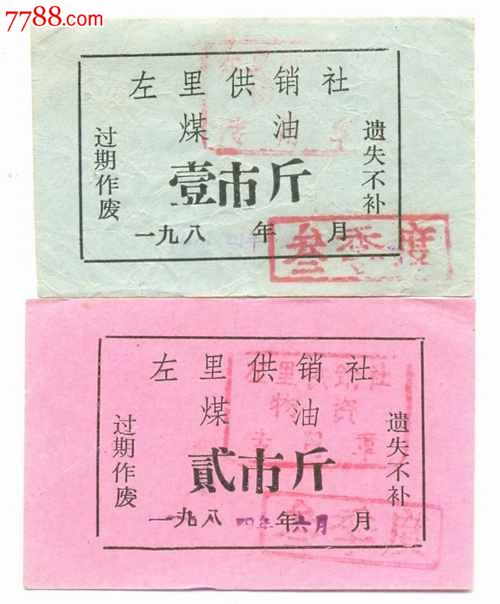 7788.com
左里供销社
煤油
壹市斤
一九八 年 月
过期作废
遗失不补
叁季度
左里供销社
煤油
贰市斤
一九八四年六月 年 月
过期作废
遗失不补
物资